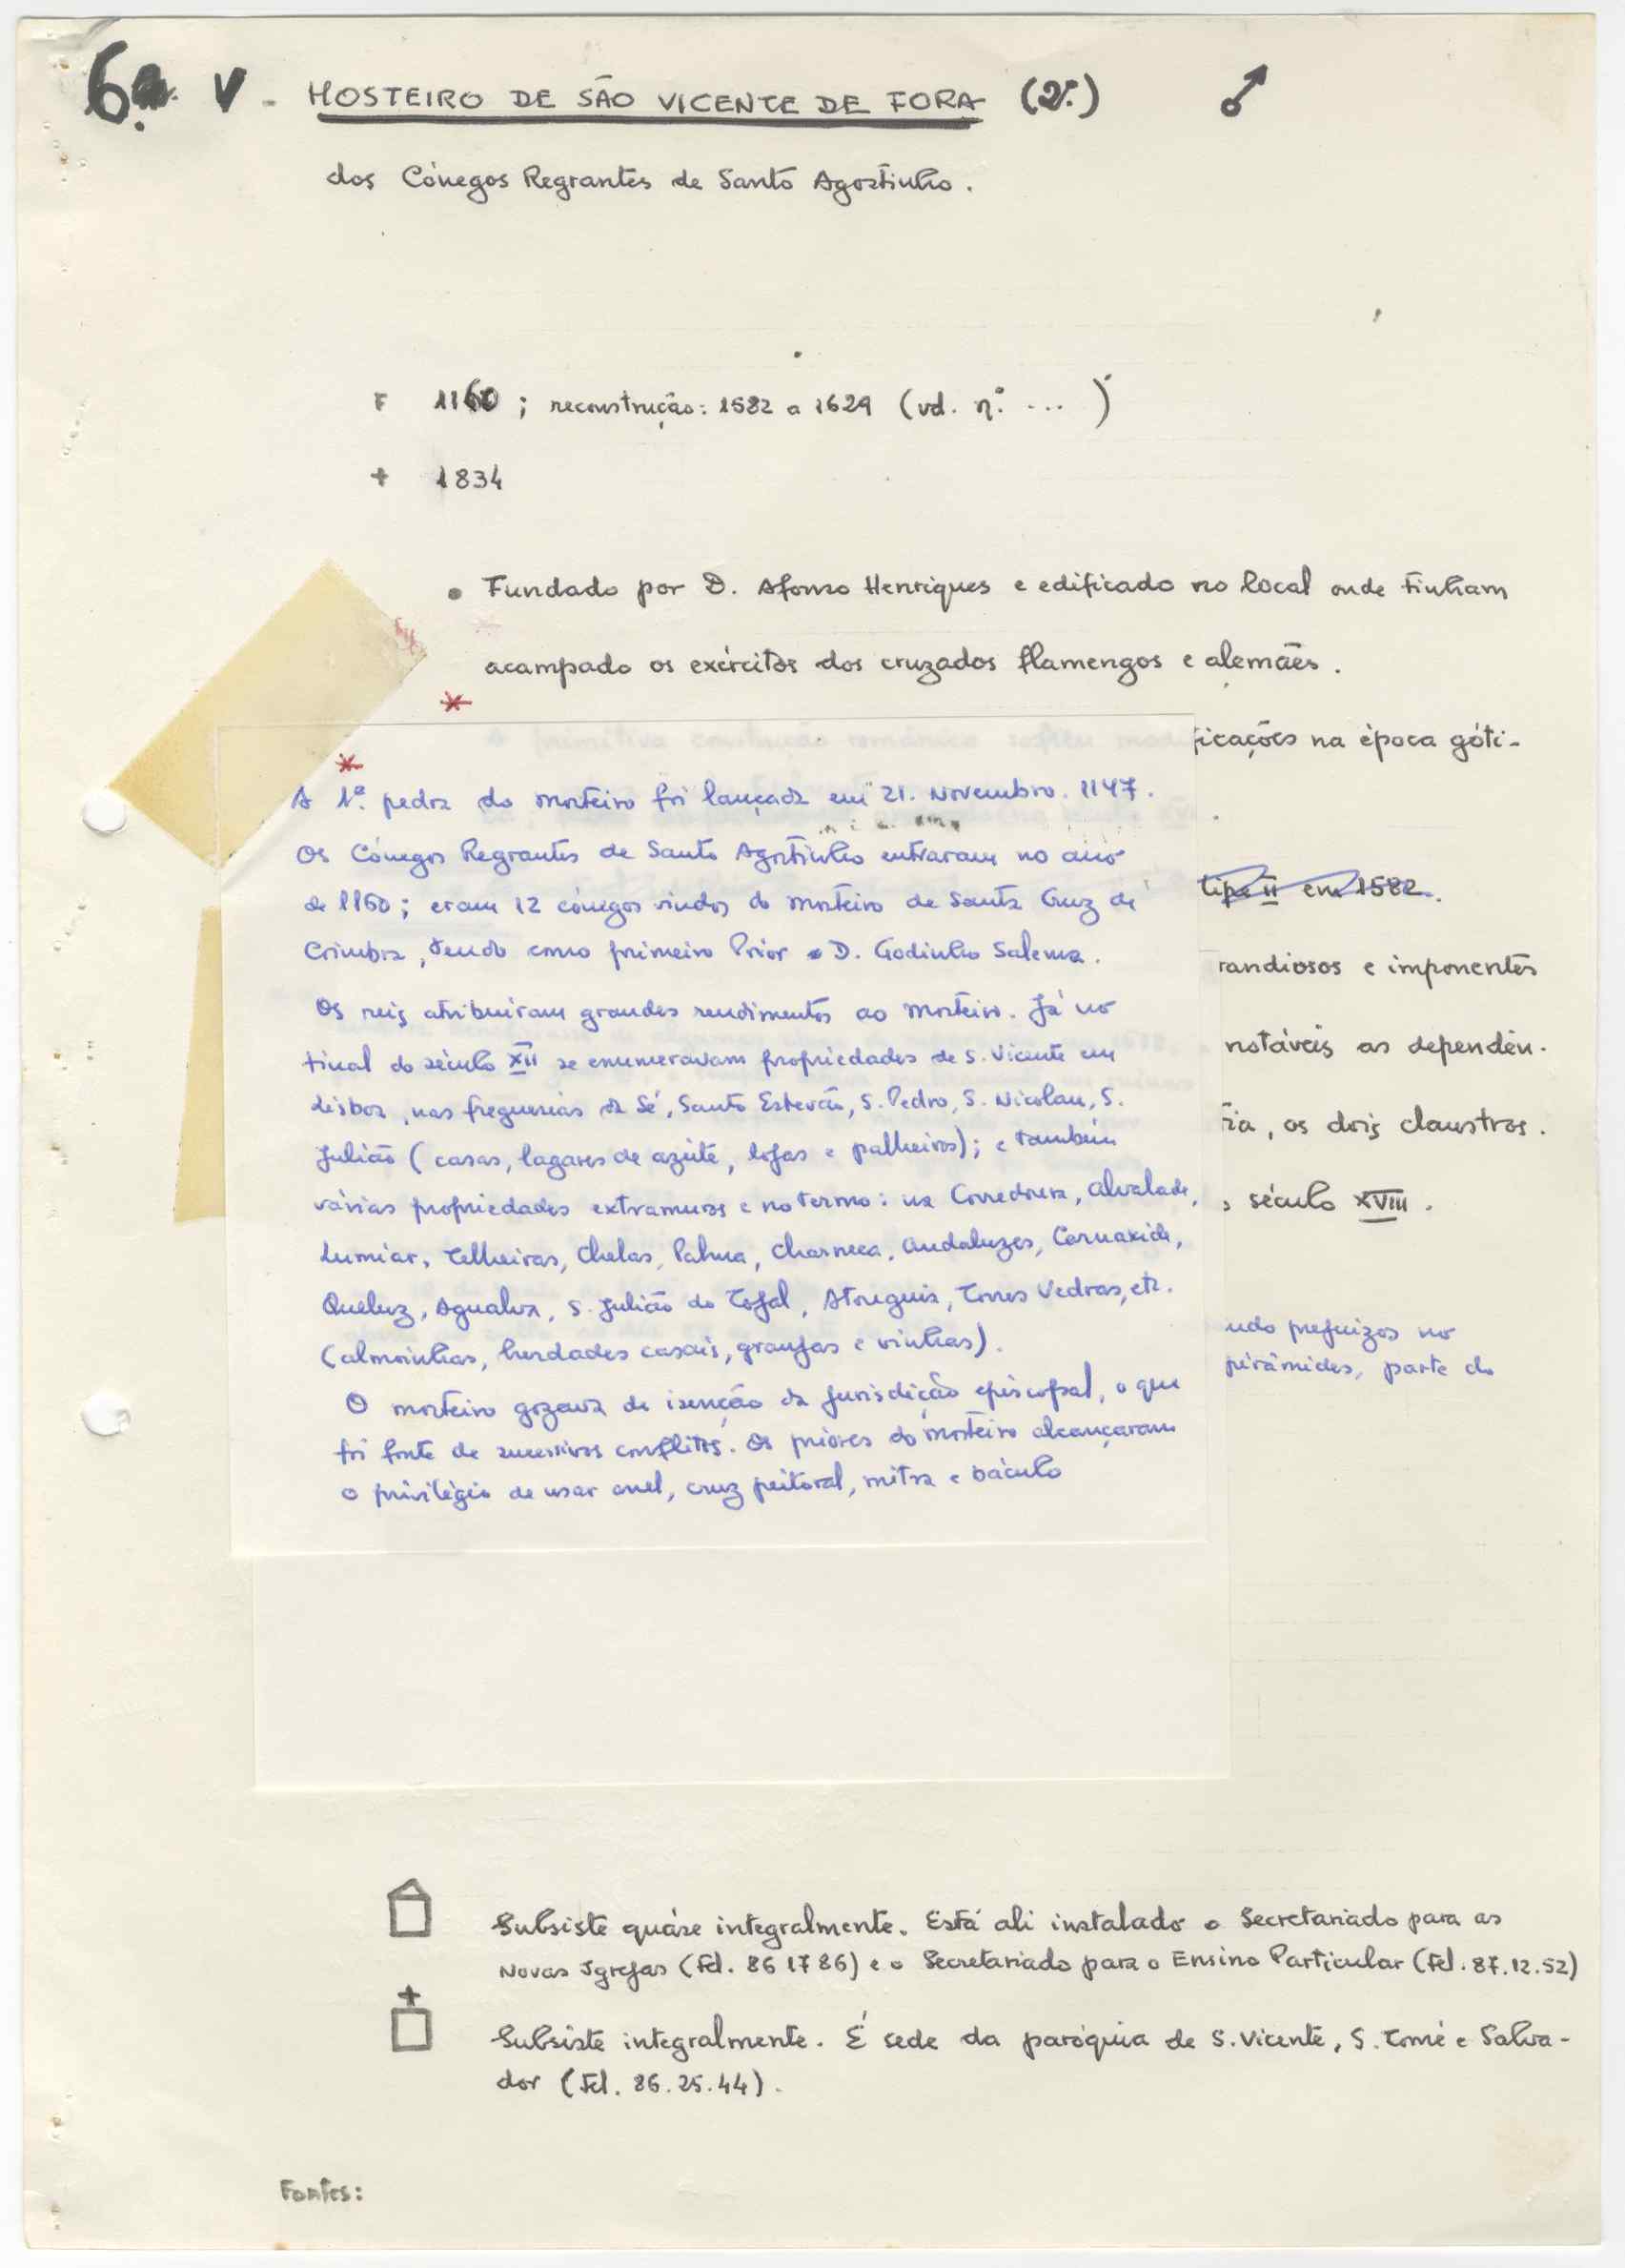 6. V - MOSTEIRO DE SÃO VICENTE DE FORA (2º.) ♂
dos Cónegos Regrantes de Santo Agostinho.
F 1160 ; reconstrução: 1582 a 1629 (vd. nº. ... )
+ 1834
• Fundado por D. Afonso Henriques e edificado no local onde tinham
acampado os exércitos dos cruzados flamengos e alemães.
*
ficações na época góti-
tipe II em 1582.
randiosos e imponentes
notáveis as dependên-
ria, os dois claustros.
século XVIII.
ndo prejuizos no
pirâmides, parte do
*
A 1ª. pedra do mosteiro foi lançada em 21. Novembro. 1147.
Os Cónegos Regrantes de Santo Agostinho entraram no ano
de 1160; eram 12 cónegos vindos do mosteiro de Santa Cruz de
Coimbra, tendo como primeiro Prior D. Godinho Salema.
Os reis atribuíram grandes rendimentos ao mosteiro. Já no
final do século XII se enumeravam propriedades de S. Vicente em
Lisboa, nas freguesias da Sé, Santo Estevão, S. Pedro, S. Nicolau, S.
Julião (casas, lagares de azeite, lojas e palheiros); e também
várias propriedades extramuros e no termo: na Corredoura, Alvalade,
Lumiar, Telheiras, Chelas, Palma, Charneca, Andaluzes, Carnaxide,
Queluz, Agualva, S. Julião do Tojal, Atouguia, Torres Vedras, etc.
(almoinhas, herdades casais, granjas e vinhas).
O mosteiro gozava de isenção da jurisdição episcopal, o que
foi fonte de sucessivos conflitos. Os priores do mosteiro alcançaram
o privilégio de usar anel, cruz peitoral, mitra e báculo
Subsiste quáse integralmente. Está ali instalado o Secretariado para as
Novas Igrejas (Tel. 86 17 86) e o Secretariado para o Ensino Particular (Tel. 87.12.52)
Subsiste integralmente. É sede da paróquia de S. Vicente, S. Tomé e Salva-
dor (Tel. 86.25.44).
Fontes: